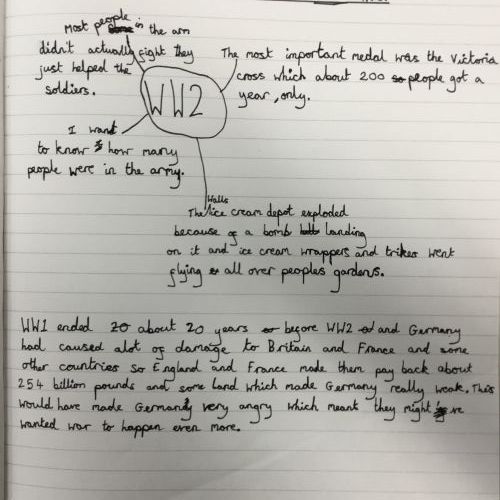 Most people in the arm
didn't actually fight they
just helped the
soldiers.
The most important medal was the Victoria
cross which about 200 people got a
year, only.
WW2
I want
to know how many
people were in the army.
Walls
The ice cream depot exploded
because of a bomb landing
on it and ice cream wrappers and trikes went
flying all over peoples gardens.
WW1 ended about 20 years before WW2 and Germany
had caused alot of damage to Britain and France and some
other countries so England and France made them pay back about
254 billion pounds and some land which made Germany really weak. This
would have made Germany very angry which meant they might've
wanted war to happen even more.